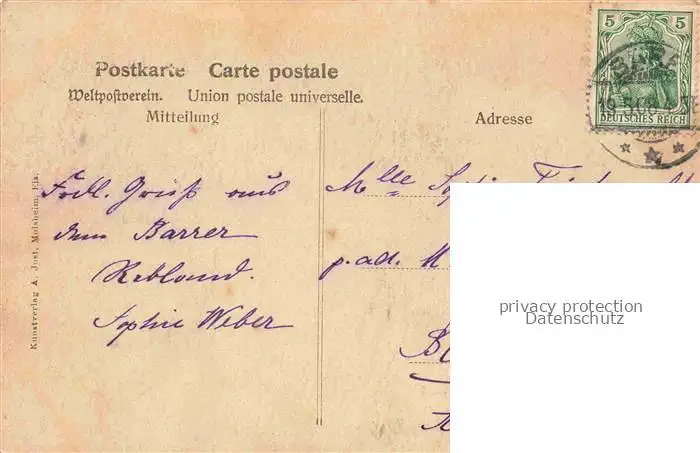 Postkarte Carte postale
Weltpostverein. Union postale universelle.
Mitteilung
Adresse
5 5
BARR
19.5.08.
DEUTSCHES REICH
Frdl. Gruß aus
dem Barrer
Rebland.
Sophie Weber
Mlle Sophie
p. ad. M
Kunstverlag A. Jost, Molsheim, Els.
privacy protection
Datenschutz